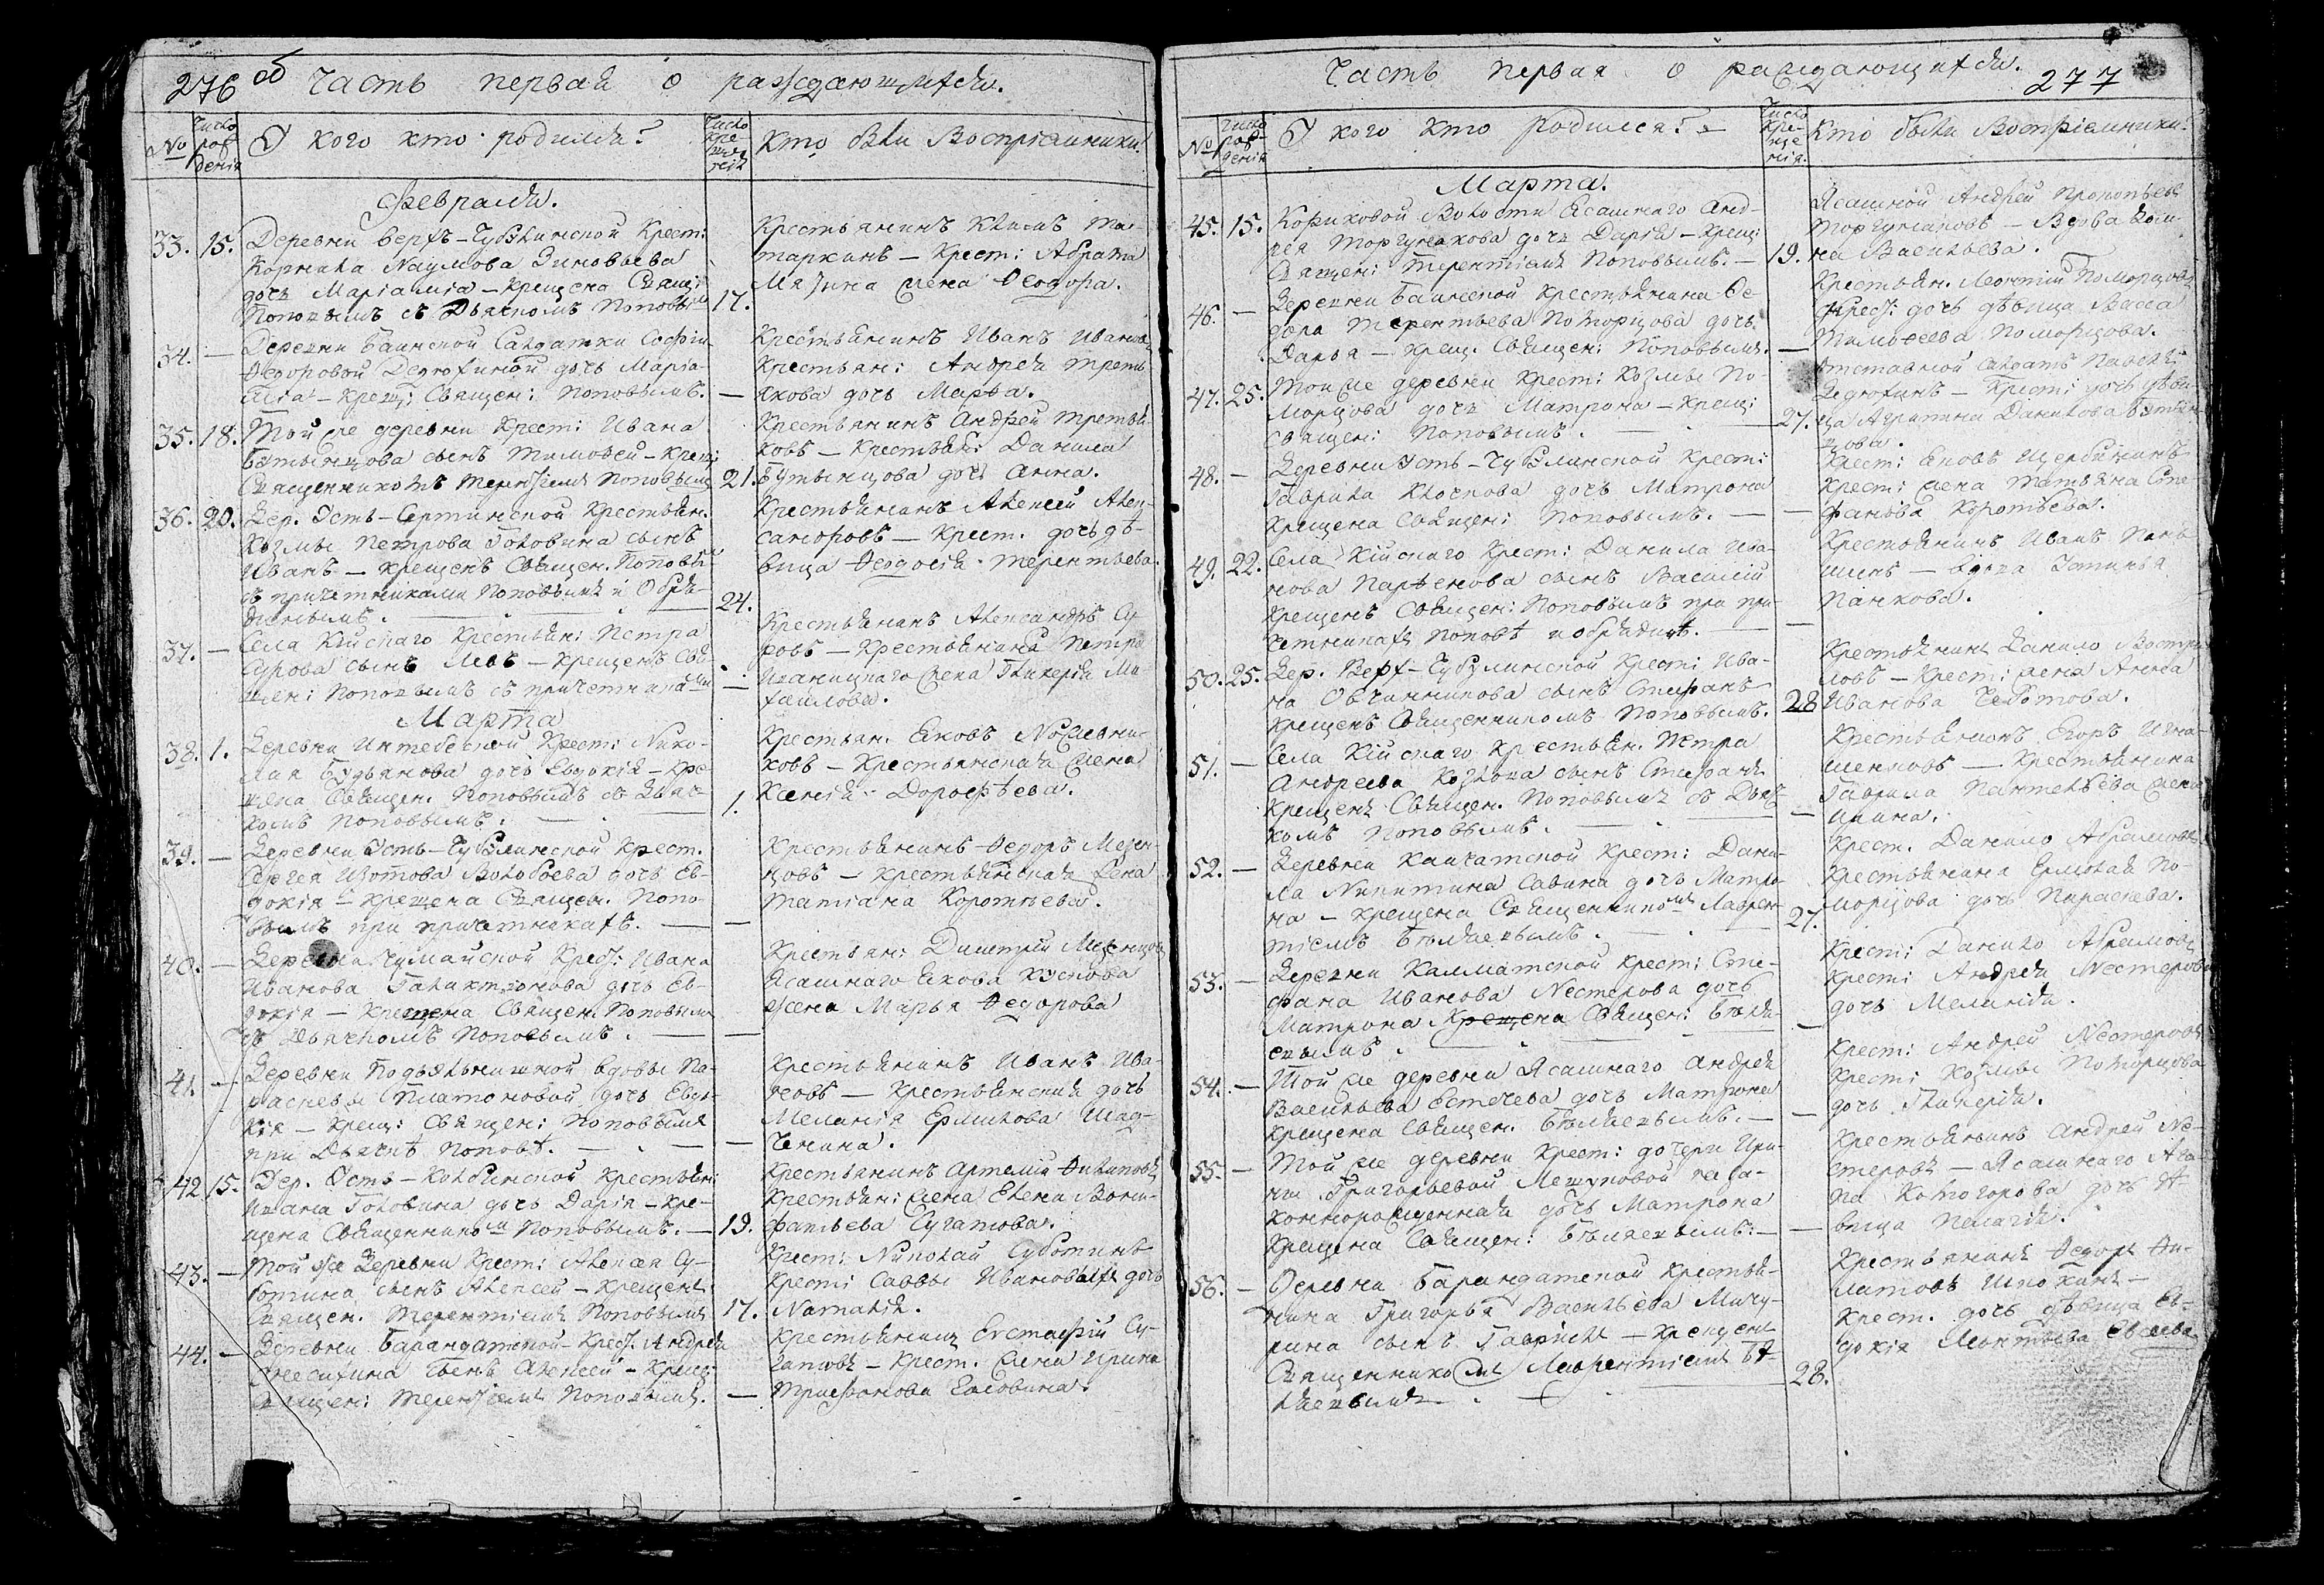 276 об Часть первая о раждающихся.
№ Число рождения У кого кто родился? Число крещения Кто были Восприемники?
Февраля.
33. 15. Деревни Верхъ-Чубулинской Крест:
Корнила Наумова Зиновьева
дочь Маріамia – Крещена Свящ:
Поповымъ съ Дьячкомъ Поповым 17.
Крестьянинъ Климъ
– Крест:
жена Ѳедора.
34. — Деревни Баимской Салдатки Софіи
Ѳедоровой Дедюхиной дочь Маріа-
мiа – Крещ: Священ: Поповымъ. —
Крестьянинъ Иванъ Ивановъ
Крестьян: Андрея Треть
якова дочь Марѳа.
35. 18. Той же деревни Крест: Ивана
Бутынцова сынъ Тимоѳей – Крещ:
Священникомъ Терентіемъ Поповым 21.
Крестьянинъ Андрей Третья-
ковъ – Крестьян: Данила
Бутынцова дочь Анна.
36. 20. Дер. Усть-Сертинской Крестьян.
Козмы Петрова Головина сынъ
Иванъ – крещенъ Священ. Поповым
съ причетниками Поповымъ и Обря-
динымъ. — 24.
Крестьянинъ Алексей Алек-
сандровъ – Крест. дочь дѣ-
вица Ѳедосія Терентьева.
37. — Села Кійскаго Крестьян: Петра
Сурова сынъ Левъ – Крещенъ Свя
щен: Поповымъ съ причетниками —
Крестьянинъ Александръ Су
ровъ – Крестьянина Петра
Иваницкаго жена Гликерія Ми-
хаилова.
Марта
38. 1. Деревни Интебеской Крест: Нико-
лая Будьянова дочь Евдокія – Кре-
щена Священ. Поповымъ съ Дьяч-
комъ Поповымъ. — 1.
Крестьян. Яковъ Кожевни-
ковъ – Крестьянская жена
Ксенія Дороѳѣева.
39. — Деревни Усть-Чубулинской Крест.
Сергея Изотова Волобоева дочь Ев-
докія – Крещена Священ. Попо-
вымъ при причетникахъ. —
Крестьянинъ Ѳедоръ Мезен-
цовъ – Крестьянская жена
Татіана Коротѣева.
40. — Деревни Чумайской Крест: Ивана
Иванова Галактіонова дочь Ев-
докія – Крещена Священ. Поповымъ
съ Дьячкомъ Поповымъ. —
Крестьян: Димитрій Мезенцовъ
Ясашнаго Якова Кускова
жена Марья Ѳедорова
41. — Деревни Подъельнишной вдовы Па-
раскевы Платоновой дочь Евдо-
кія – Крещ: Священ: Поповымъ
при Дьячкѣ Поповѣ. —
Крестьянинъ Иванъ Ива-
новъ – Крестьянская дочь
Меланія Ермилова Шад-
ченина.
42 15. Дер. Усть-Колбинской Крестьян:
Ивана Головина дочь Дарія – Кре-
щена Священником Поповымъ. — 19.
Крестьянинъ Артемій Филиповъ
Крестьян: жена Елена Вони-
фатьева Сугатова.
43. — Той же Деревни Крест: Алексея Су-
ботина сынъ Алексей – Крещенъ
Священ. Терентіемъ Поповымъ 17.
Крест: Николай Суботинъ
Крест: Саввы Ивановыхъ дочь
Наталія.
44. — Деревни Барандатской Крест. Андрея
сынъ Алексей – Крещ:
Священ: Терентіемъ Поповымъ. —
Крестьянинъ Евстафій Су-
гатовъ – Крест. жена Ирина
Трифонова Еловина.
Часть первая о раждающихся. 277
№ Число рождения У кого кто родился? Число крещения. Кто были Восприемники.
Марта.
45. 15. Корюковой Волости Ясашнаго Анд-
рея Торгунакова дочь Дарія – Крещ:
Священ: Терентіемъ Поповымъ. — 19.
Ясашной Андрей Прокопьевъ
Торгунаковъ – Вдова
на Васильева.
46. — Деревни Баимской Крестьянина Ѳе-
дора Терентьева Поморцова дочь
Дарья – Крещ. Священ: Поповымъ. —
Крестьян. Леонтий Поморцовъ
Крест: дочь дѣвица Васса
Тимоѳеева Поморцова.
47. 25. Той же деревни Крест: Козмы По-
морцова дочь Матрона – Крещ:
Священ: Поповымъ. — 27.
Отставной салдатъ Павелъ
Дедюхинъ – Крест: дочь дѣви-
ца Агрипина Данилова Бутын-
цова.
48. — Деревни Усть-Чубулинской Крест:
Гаврила Клочкова дочь Матрона
Крещена Священ: Поповымъ. —
Крест: Яковъ Щербининъ
Крест: жена Татьяна Сте-
фанова Коротѣева.
49. 22. Села Кійскаго Крест: Данила Ива-
нова Парѳенова сынъ Василій
Крещенъ Священ: Поповымъ при при-
четникахъ Поповѣ и Обрядинѣ. —
Крестьянинъ Иванъ Пань-
шинъ – вдова Устинья
Панкова.
50. 25. Дер. Верх-Чубулинской Крест: Ива-
на Овчинникова сынъ Стефанъ
Крещенъ Священникомъ Поповымъ. 28
Крестьянинъ Данило Востри-
ковъ – Крест: жена Анна
Иванова Чеботова.
51. — Села Кійскаго Крестьян. Петра
Андреева Козлова сынъ Стефанъ
Крещенъ Священ. Поповымъ съ Дьяч-
комъ Поповымъ. —
Крестьянинъ Егоръ Игна-
шенковъ – Крестьянина
Гаврила Пантелѣева жена
Ирина.
52. — Деревни Камчатской Крест: Дани-
ла Никитина Савина дочь Матро-
на – Крещена Священником Лаврен-
тіемъ Бѣляевымъ. — 27.
Крест. Данило Абрамовъ
Крестьянина Ермолая По-
морцова дочь Параскева.
53. — Деревни Калматской Крест: Сте-
фана Иванова Нестерова дочь
Матрона Крещена Священ: Бѣля-
евымъ. —
Крест: Данило Абрамовъ
Крест: Андрея Нестерова
дочь Меланія.
54. — Той же деревни Ясашнаго Андрея
Васильева Естечева дочь Матрона
Крещена Священ. Бѣляевымъ. —
Крест: Андрей Нестеровъ
Крест: Козмы Поморцова
дочь Гликерія.
55. — Той же деревни Крест: дочери Ири-
ны Григорьевой неза-
коннорожденная дочь Матрона
Крещена Священ: Бѣляевымъ. —
Крестьянинъ Андрей Не-
стеровъ – Ясашнаго Ага-
па Котогорова дочь дѣ-
вица Пелагія.
56. — Деревни Барандатской Крестья-
нина Григорья Васильева Мичу-
рина сынъ Гавріилъ – Крещенъ
Священникомъ Лаврентіемъ Бѣ-
ляевымъ. — 28.
Крестьянинъ Ѳедоръ Фи-
латовъ –
Крест. дочь дѣвица Ев-
докія Леонтьева